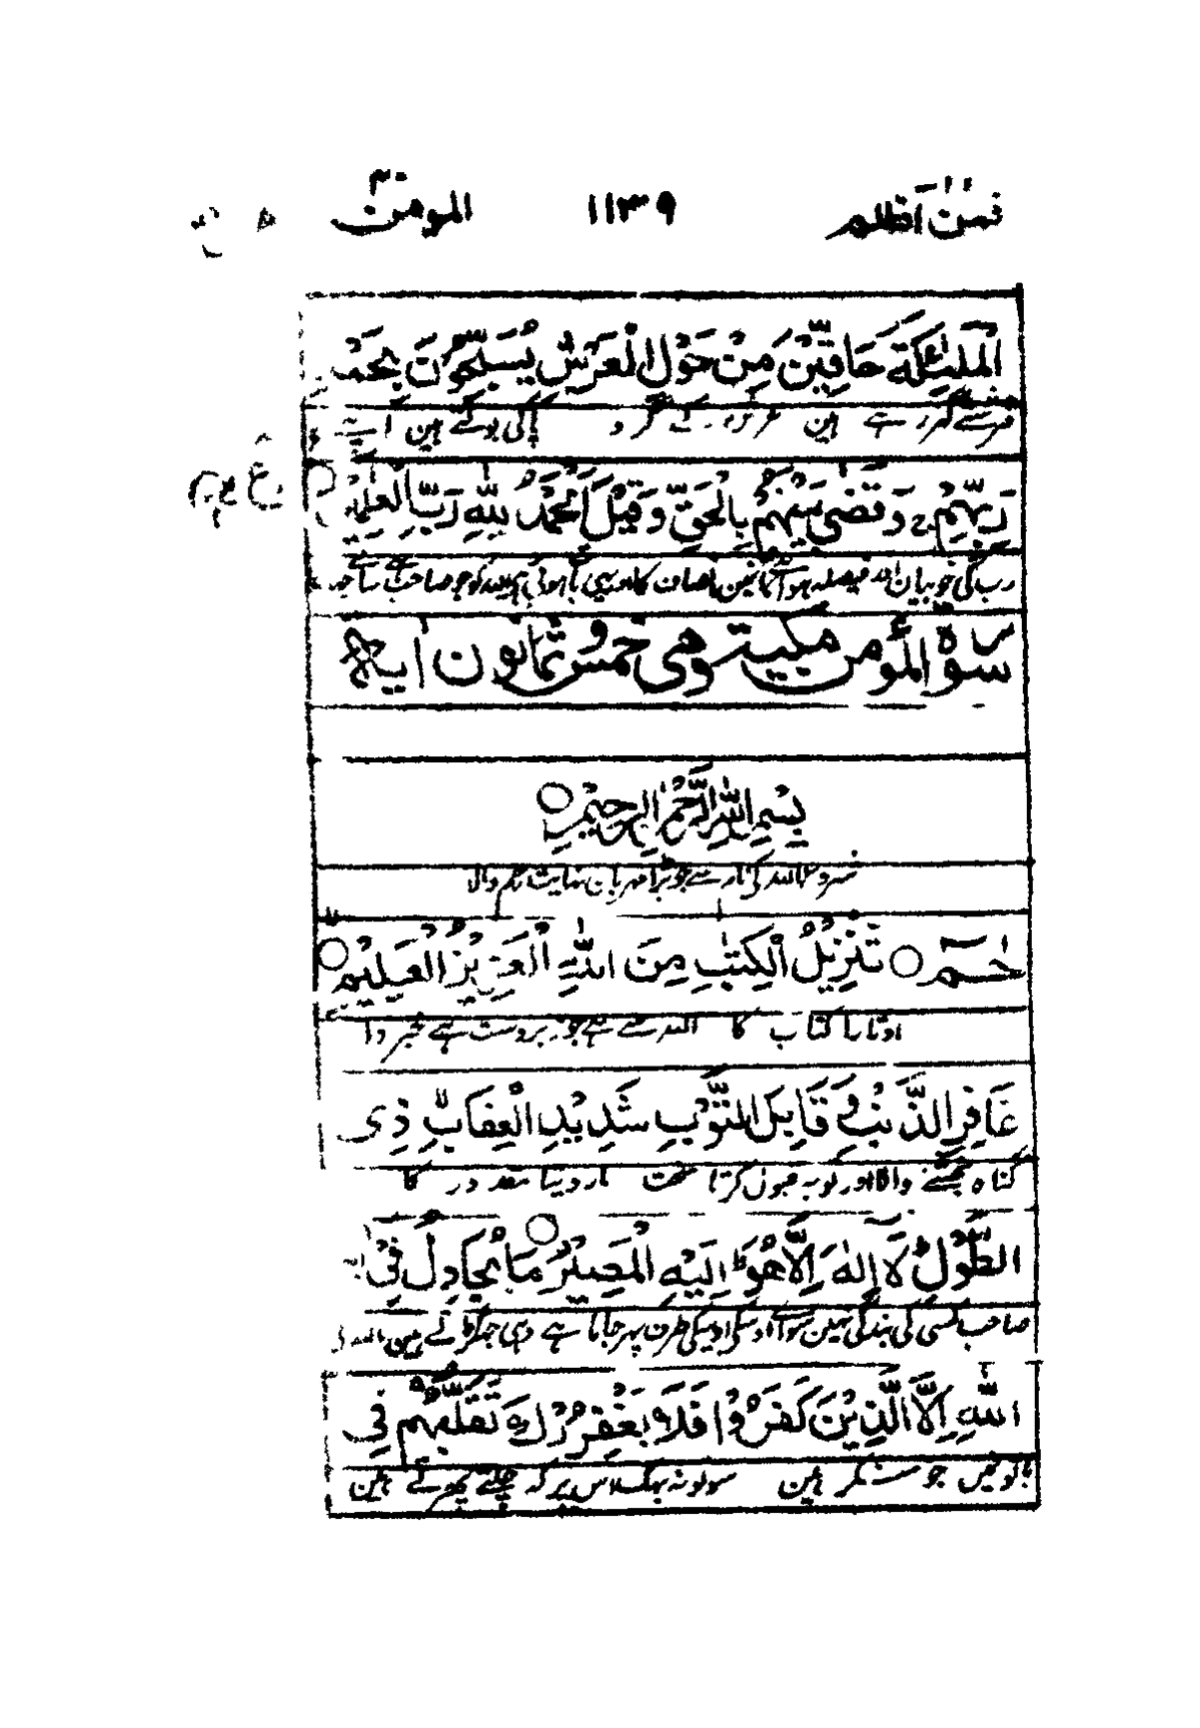 فمن اظلم ۱۱۳۹ المومن ۴۰
الْمَلٰٓئِكَةَ حَافِّيْنَ مِنْ حَوْلِ الْعَرْشِ يُسَبِّحُوْنَ بِحَمْدِ
گھر رہے ہین عرش کے گرد پاکی بولتے ہین اپنے
رَبِّهِمْ ۚ وَقُضِيَ بَيْنَهُمْ بِالْحَقِّ وَقِيْلَ الْحَمْدُ لِلّٰهِ رَبِّ الْعٰلَمِيْنَ
رب کی خوبیان اور فیصلہ ہوا انمین انصاف کا اور یہی بات ہوئی کہ اللہ کو جو صاحب ہے سارے
سورة المؤمن مكية وهي خمس وثمانون آية
بِسْمِ اللّٰهِ الرَّحْمٰنِ الرَّحِيْمِ
شروع اللہ کے نام سے جو بڑا مہربان نہایت رحم والا
حٰمٓ تَنْزِيْلُ الْكِتٰبِ مِنَ اللّٰهِ الْعَزِيْزِ الْعَلِيْمِ
اوتارا کتاب کا اللہ سے ہے جو زبردست ہے خبردار
غَافِرِ الذَّنْۢبِ وَقَابِلِ التَّوْبِ شَدِيْدِ الْعِقَابِ ذِى
گناہ بخشنے والا اور توبہ قبول کرتا سخت مار دیتا مقدور کا
الطَّوْلِ ۭ لَآ اِلٰهَ اِلَّا هُوَ ۭ اِلَيْهِ الْمَصِيْرُ مَا يُجَادِلُ فِيْٓ
صاحب کسی کی بندگی نہین سوائے اوسکے اوسیکی طرف پھر جانا ہے وہی جھگڑتے ہین
اللّٰهِ اِلَّا الَّذِيْنَ كَفَرُوْا فَلَا يَغْرُرْكَ تَقَلُّبُهُمْ فِي
باتونمین جو منکر ہین سو تو نہ بہک اس پر کہ چلتے پھرتے ہین